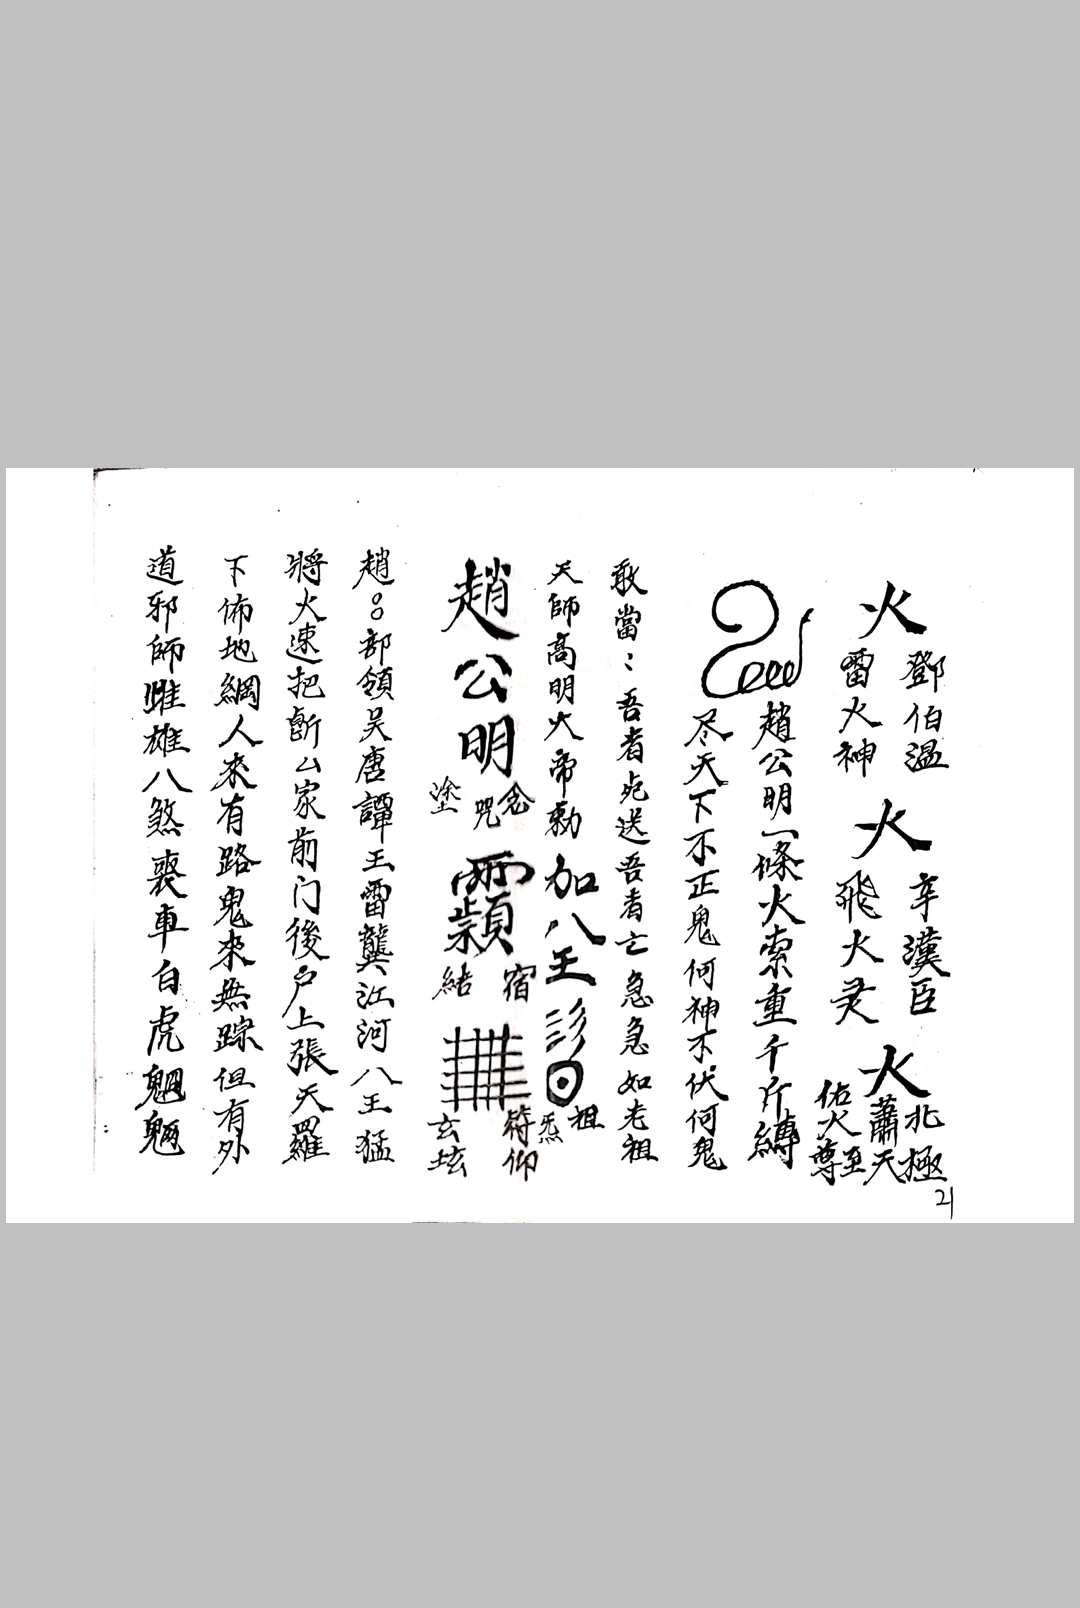 火
鄧伯温
雷火神
火
辛漢臣
飛火灵
火
北極
蕭天
佑火至尊
趙公明一條火索重千斤縛
尽天下不正鬼何神不伏何鬼
敢當：吾者死送吾者亡急急如老祖
天師高明大帝勅
加八王
祖炁
趙公明
念咒塗
宿結
符仰玄坛
趙公明部領吴唐譚王雷龔江河八王猛
將火速把斬厶家前门後户上張天羅
下佈地網人來有路鬼來無踪但有外
道邪師雌雄八煞喪車白虎魍魎
21